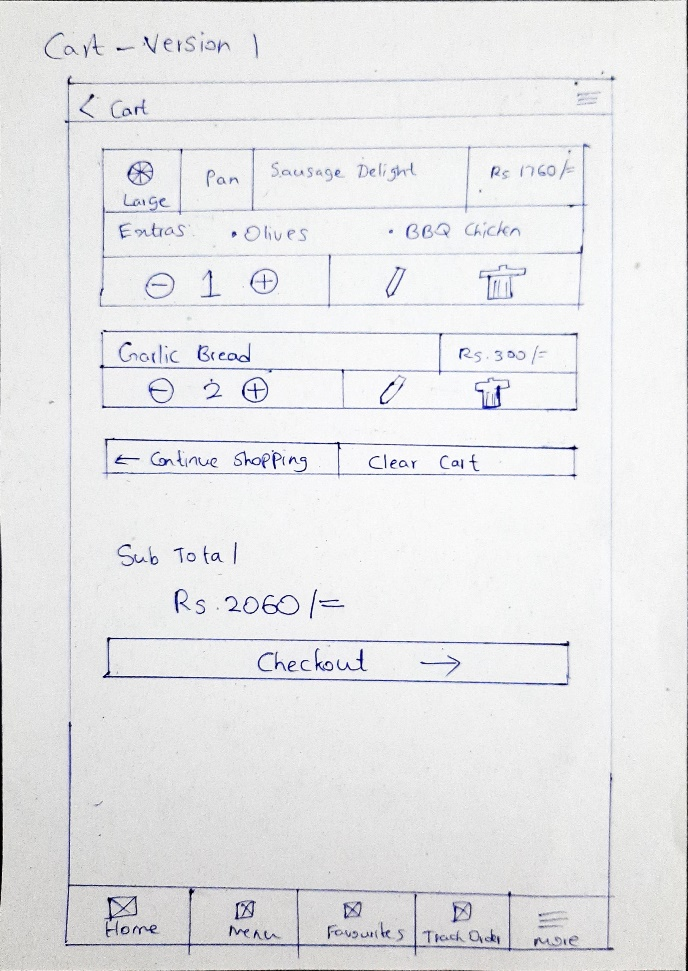 Cart - Version 1
< Cart
Large Pan Sausage Delight Rs 1760/=
Extras: • Olives • BBQ Chicken
- 1 +
Garlic Bread Rs. 300/=
- 2 +
← Continue Shopping Clear Cart
Sub Total
Rs. 2060/=
Checkout →
Home Menu Favourites Track Order More